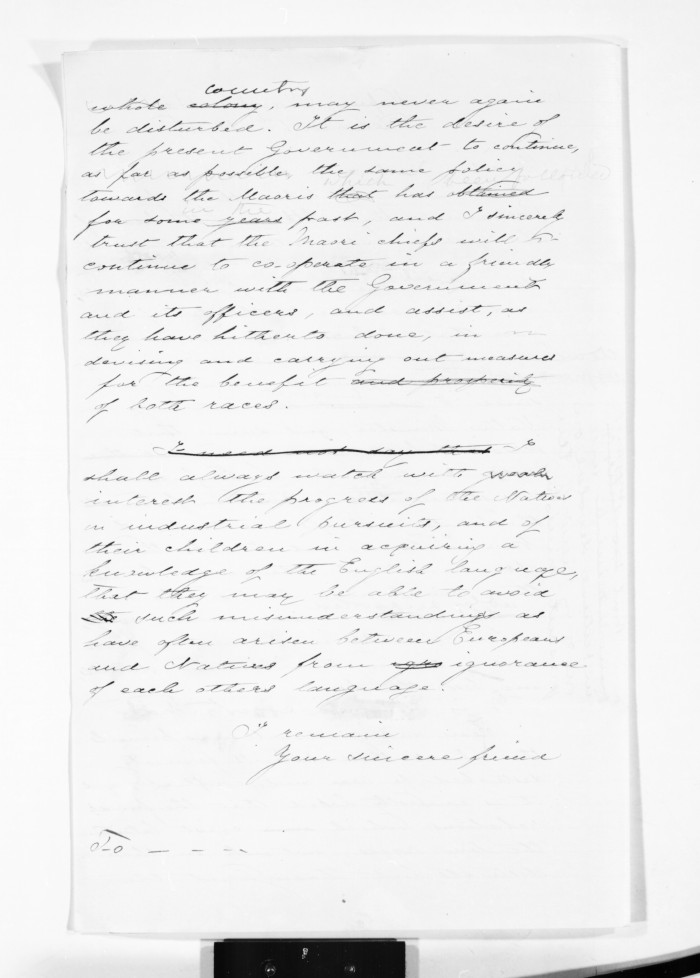 country
whole colony, may never again
be disturbed. It is the desire of
the present Government to continue,
as far as possible, the same policy
which been followed
towards the Maoris that has obtained
in the
for some years past, and I sincerely
trust that the Maori chiefs will
continue to co-operate in a friendly
manner with the Government
and its officers, and assist, as
they have hitherto done, in
devising and carrying out measures
for the benefit and prosperity
of both races.
I need not say that I
shall always watch with great
interest the progress of the Natives
in industrial pursuits, and of
their children in acquiring a
knowledge of the English language,
that they may be able to avoid
such misunderstandings as
have often arisen between Europeans
and Natives from ignorance
of each others language.
I remain
Your sincere friend
To - - - -